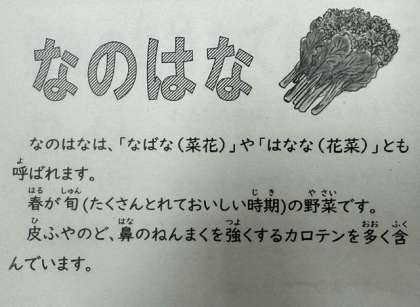 なのはな
なのはなは、「なばな(菜花)」や「はなな(花菜)」とも
呼ばれます。
春が旬(たくさんとれておいしい時期)の野菜です。
皮ふやのど、鼻のねんまくを強くするカロテンを多く含
んでいます。